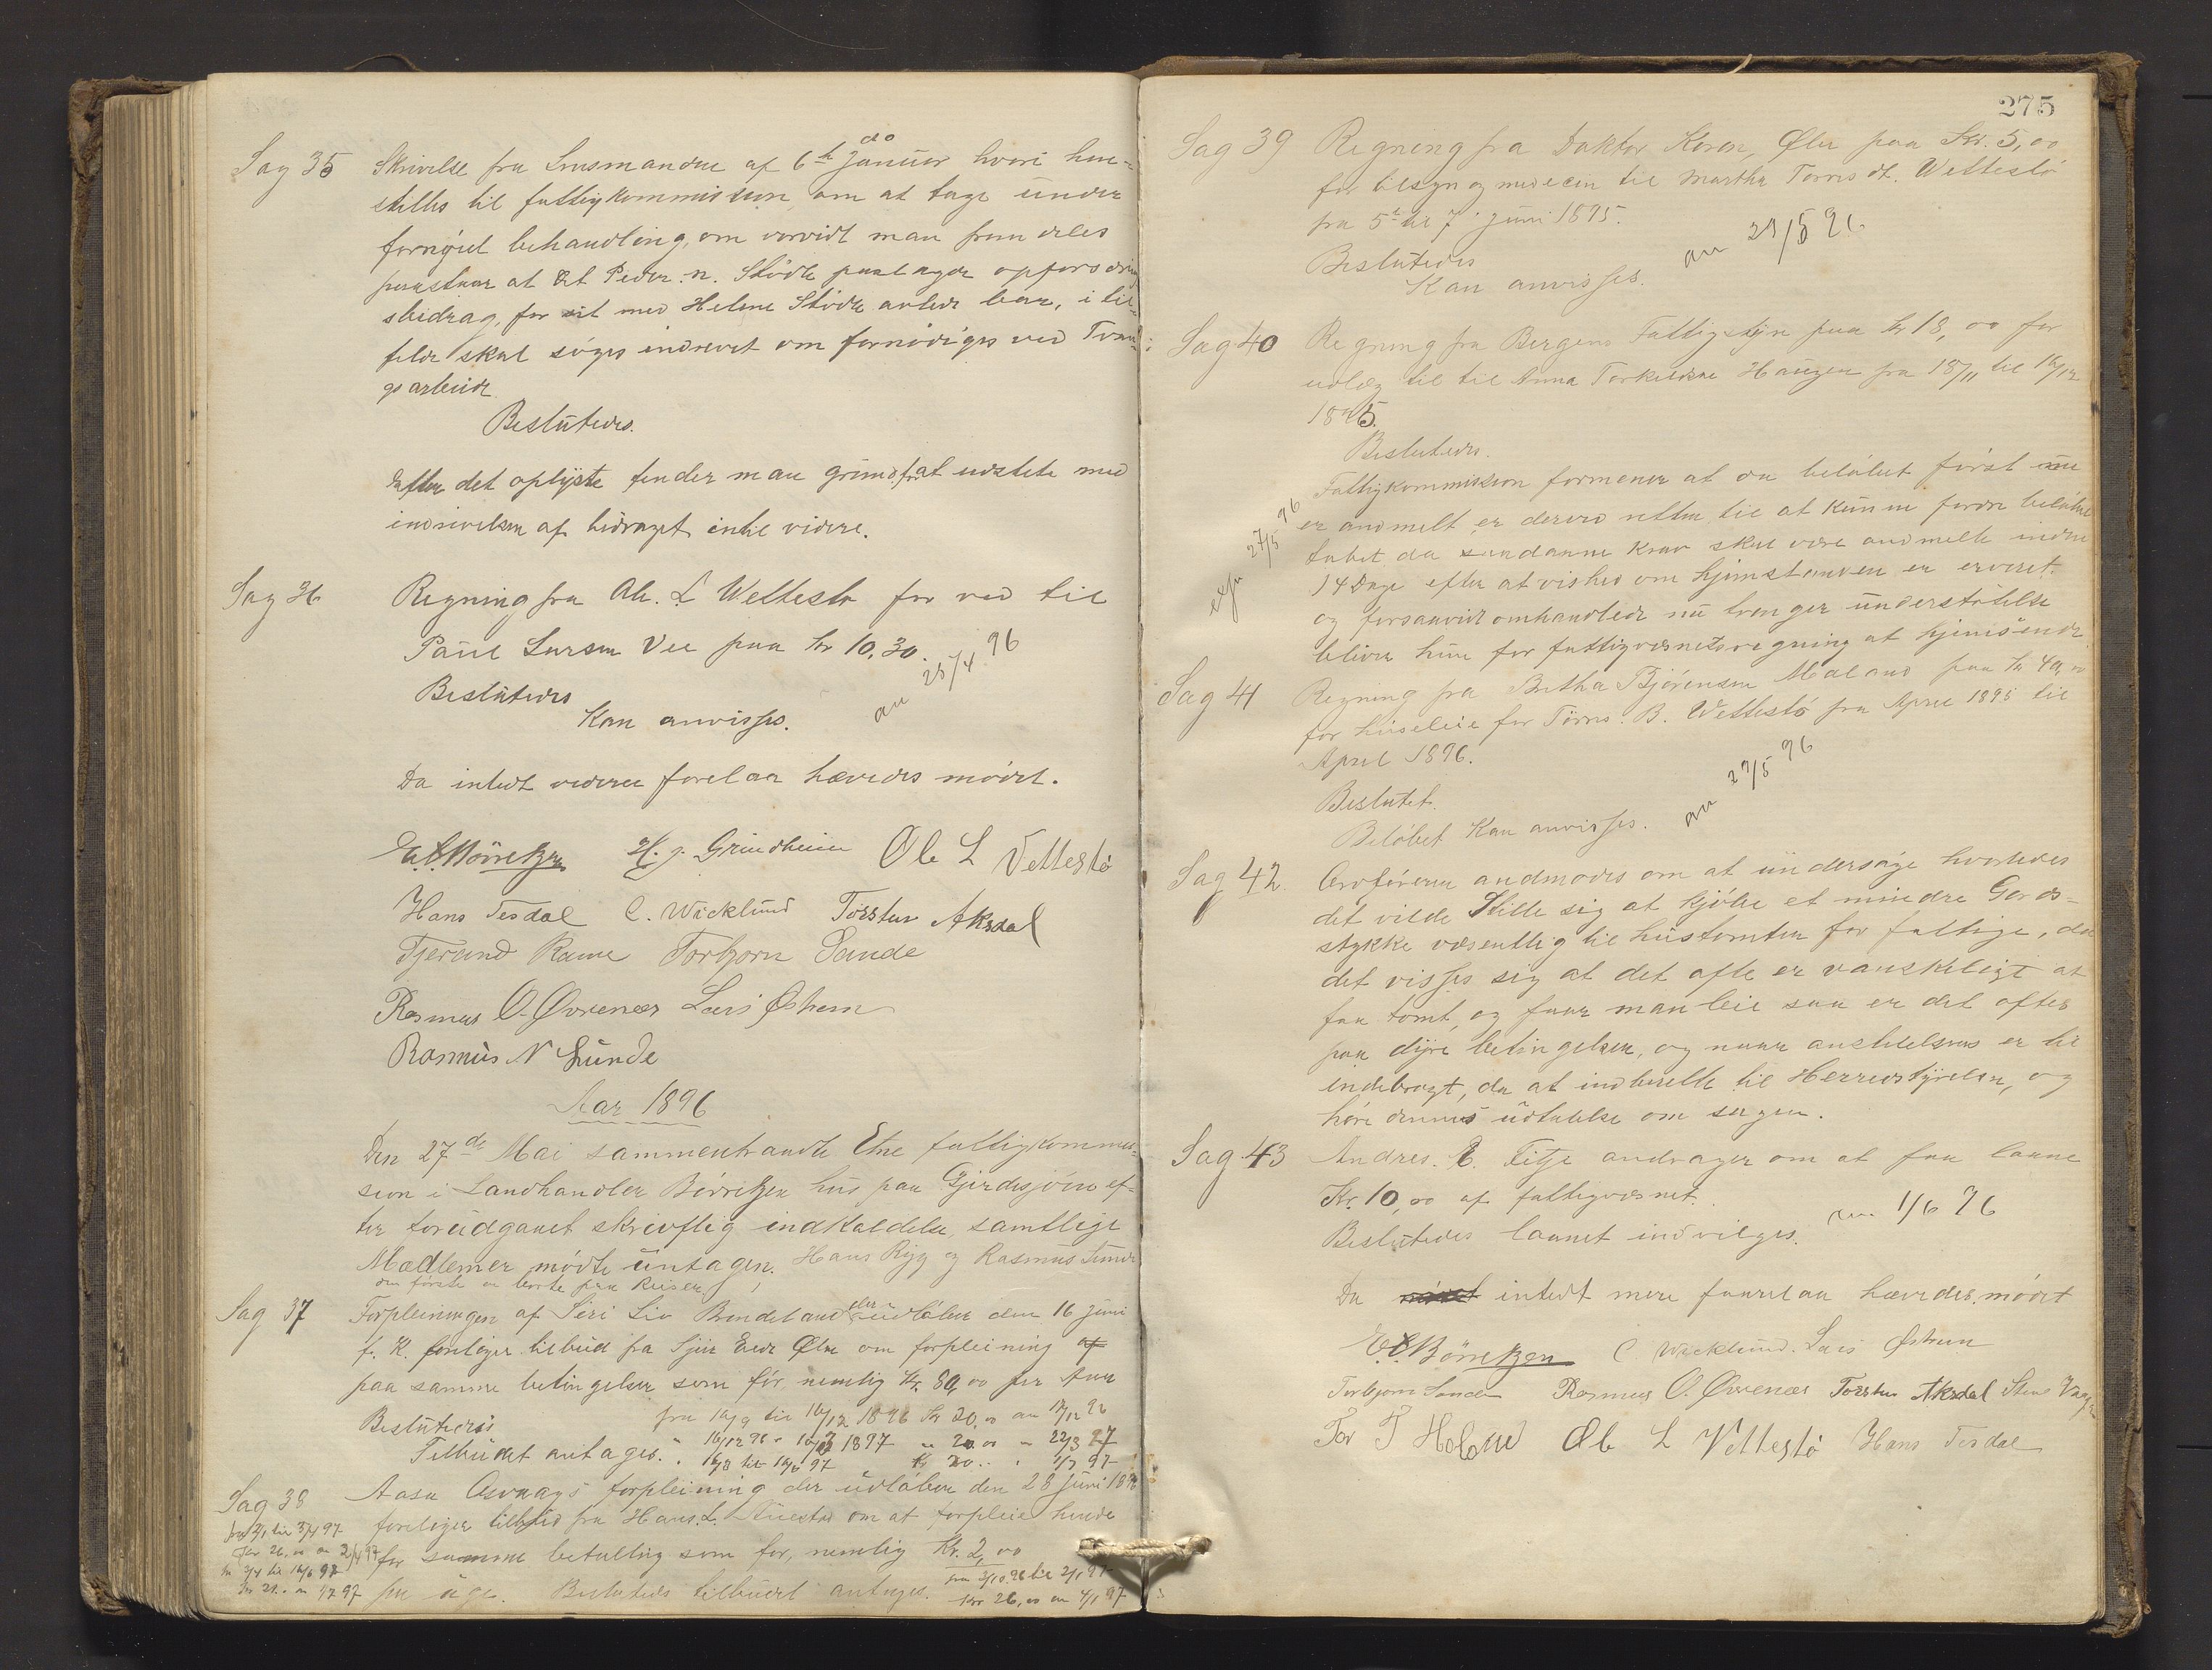 Sag 35 Skrivelse fra Lensmanden af 6te do Januar hvori hen-
stilles til fattigkommissionen, om at tage under
fornøiet behandling, om vorvidt man fremdeles
paastaar at det Peder. N. Støde paalagde opfostrings
bidrag, for sit med Helene Støde avlede barn, i til-
felde skal søges indrevet om fornødiges ved Tvan-
gsarbeide.
Besluttedes.
Efter det oplyste finder man grund for at udstete med
indrivelsen af bidraget indtil videre.
Sag 36 Regning fra Ole. L Wettestø for ved til
Paul Larsen Vee paa kr 10,30.
Besluttedes
Kan anvisses. an 23/4 96
Da intedt videre forelaa hævedes mødet.
E.C. Børretzen H. J. Grindheim Ole L Vettestø
Hans Tesdal C. Wicklund Torsten Aksdal
Tjerand Rame Torbjørn Sande
Rasmus O. Øvrenæs Lars Østrem
Rasmus N Lunde
Aar 1896
Den 27de Mai sammentraadte Etne fattigkommis-
sion i Landhandler Børretzen hus paa Gjerdesjøen ef-
ter forudgaaet skrivftlig indkaldelse, samtlige
Medlemer mødte untagen. Hans Rygg og Rasmus Lunde
den første er borte paa Reiser
Sag 37 Forpleiningen af Siri Liv Brendeland der udløber den 16 juni
f. K. foreligger tilbud fra Sjur Eede Ølen om forpleining af
paa samme betingelser som før nemlig Kr. 80,00 per Aar
Besluttedes. fra 16/9 til 16/12 1896 Kr 20,00 an 17/12 96
Tilbudet antages. " 16/12 96 - 16/3 1897 " 20.00 " 22/3 97
" 16/3 til 16/6 97 Kr 20.. " 1/7 97
Sag 38 Aasa Asvaags forpleining der udløber den 28 juni 1896
foreligger tilbud fra Hans. L. Auestad om at forpleie hende
for samme betalling som før, nemlig Kr. 2,00
per uge. Besluttedes tilbudet antages.
fra 3/10.96 til 2/1 97
Kr 26,00 an 4/1 97
fra 2/1 til 3/4 97
Kr 26,00 an 2/4 97
fr 3/4 til 16/6 97
Kr 21.. an 1/7 97
275
Sag 39 Regning fra Doktor Koren, Ølen paa Kr. 5,00
for tilsyn og medecin til Martha Tørres dt. Wettestø
fra 5te til 7 juni 1895.
Besluttedes
Kan anvisses. an 29/5 96
Sag 40 Regning fra Bergens Fattigstyr paa kr 18,00 for
udlæg til til Anna Torkildsne Haugen fra 18/11 til 16/12
1895.
Besluttedes.
Fattigkommission formener at da beløbet først nu
er andmelt er derved retten til at kunne fordre beløbet
tabet da saadanne krav skul være andmelte inden
14 Dage efter at vished om hjemstanden er ervervet.
og forsaavidt omhandlede nu trenger understøttelse
bliver hun for fattigvæsnets regning at hjemsende
exp 27/5 96
Sag 41 Regning fra Britha Bjørensen Maland paa kr 40,00
for husleie for Tørres. B. Wettestø fra April 1895 til
April 1896.
Besluttet.
Beløbet Kan anvisses. an 29/5 96
Sag 42. Ordføreren andmodes om at undersøge hvorledes
det vilde Stille sig at kjøbe et mindre Gards-
stykke væsentlig til hustomten for fattige, da
det visses sig at det ofte er vanskeligt at
faa tomt, og faar man leie saa er det oftes
paa dyre betingelser, og naar anskelelsen er til
endebragt, da at indberette til Herredstyrelsen, og
høre dennes udtalelse om sagen.
Sag 43 Andres. E. Fitje andrager om at faa laane
Kr. 10,00 af fattigvæsnet.
Besluttedes laanet indvilges. an 1/6 96
Da intedt mere faarelaa hævedes mødet
E.C. Børretzen C Wicklund. Lars Østrem
Torbjørn Sande Rasmus O. Øvrenæs Torsten Aksdal
Tor T Høland Ole L Vettestø Hans Tesdal